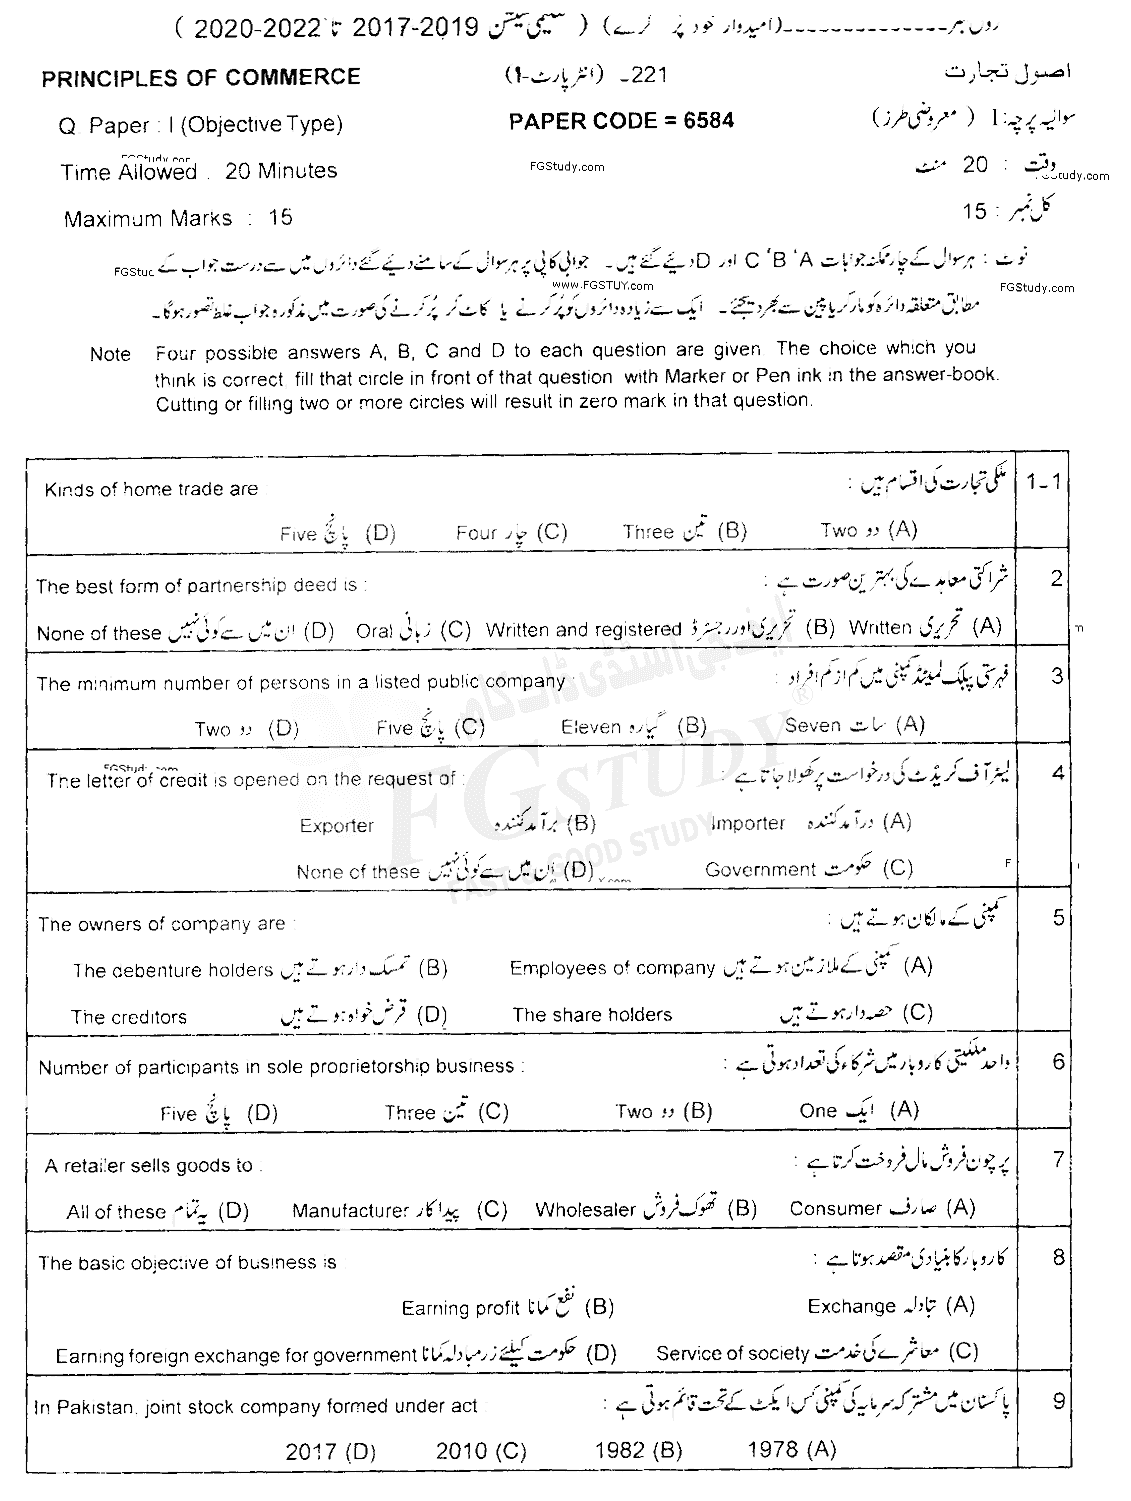 رول نمبر---------------(امیدوار خود پُر کرے) ( سیمی سیشن 2019-2017 تا 2022-2020 )
PRINCIPLES OF COMMERCE 221- (انٹر پارٹ-I) اصول تجارت
Q Paper : I (Objective Type) PAPER CODE = 6584 سوالیہ پرچہ : I ( معروضی طرز)
FGStudy.com
Time Allowed . 20 Minutes FGStudy.com وقت : 20 منٹ
Study.com
Maximum Marks : 15 کل نمبر : 15
نوٹ : ہر سوال کے چار ممکنہ جوابات A، B، C اور D دیئے گئے ہیں۔ جوابی کاپی پر ہر سوال کے سامنے دیئے گئے دائروں میں سے درست جواب کے
FGStuc
www.FGSTUY.com FGStudy.com
مطابق متعلقہ دائرہ کو مارکر یا پین سے بھر دیجئے۔ ایک سے زیادہ دائروں کو پُر کرنے یا کاٹ کر پُر کرنے کی صورت میں مذکورہ جواب غلط تصور ہوگا۔
Note Four possible answers A, B, C and D to each question are given The choice which you
think is correct fill that circle in front of that question with Marker or Pen ink in the answer-book.
Cutting or filling two or more circles will result in zero mark in that question.
Kinds of home trade are ملکی تجارت کی اقسام ہیں : 1-1
Five پانچ (D) Four چار (C) Three تین (B) Two دو (A)
The best form of partnership deed is : شراکتی معاہدے کی بہترین صورت ہے : 2
None of these ان میں سے کوئی نہیں (D) Oral زبانی (C) Written and registered تحریری اور رجسٹرڈ (B) Written تحریری (A)
The minimum number of persons in a listed public company : فہرستی پبلک لمیٹڈ کمپنی میں کم از کم افراد : 3
Two دو (D) Five پانچ (C) Eleven گیارہ (B) Seven سات (A)
The letter of credit is opened on the request of : لیٹر آف کریڈٹ کی درخواست پر کھولا جاتا ہے : 4
Exporter برآمد کنندہ (B) Importer درآمد کنندہ (A)
None of these ان میں سے کوئی نہیں (D) Government حکومت (C)
The owners of company are : کمپنی کے مالکان ہوتے ہیں : 5
The debenture holders تمسک دار ہوتے ہیں (B) Employees of company کمپنی کے ملازمین ہوتے ہیں (A)
The creditors قرض خواہ ہوتے ہیں (D) The share holders حصہ دار ہوتے ہیں (C)
Number of participants in sole proprietorship business : واحد ملکیتی کاروبار میں شرکاء کی تعداد ہوتی ہے : 6
Five پانچ (D) Three تین (C) Two دو (B) One ایک (A)
A retailer sells goods to : پرچون فروش مال فروخت کرتا ہے : 7
All of these یہ تمام (D) Manufacturer پیداکار (C) Wholesaler تھوک فروش (B) Consumer صارف (A)
The basic objective of business is : کاروبار کا بنیادی مقصد ہوتا ہے : 8
Earning profit نفع کمانا (B) Exchange تبادلہ (A)
Earning foreign exchange for government حکومت کیلئے زرمبادلہ کمانا (D) Service of society معاشرے کی خدمت (C)
In Pakistan, joint stock company formed under act : پاکستان میں مشترکہ سرمایہ کی کمپنی کس ایکٹ کے تحت قائم ہوتی ہے : 9
2017 (D) 2010 (C) 1982 (B) 1978 (A)
ایف جی اسٹڈی ڈاٹ کام
FGSTUDY ®
FAST & GOOD STUDY